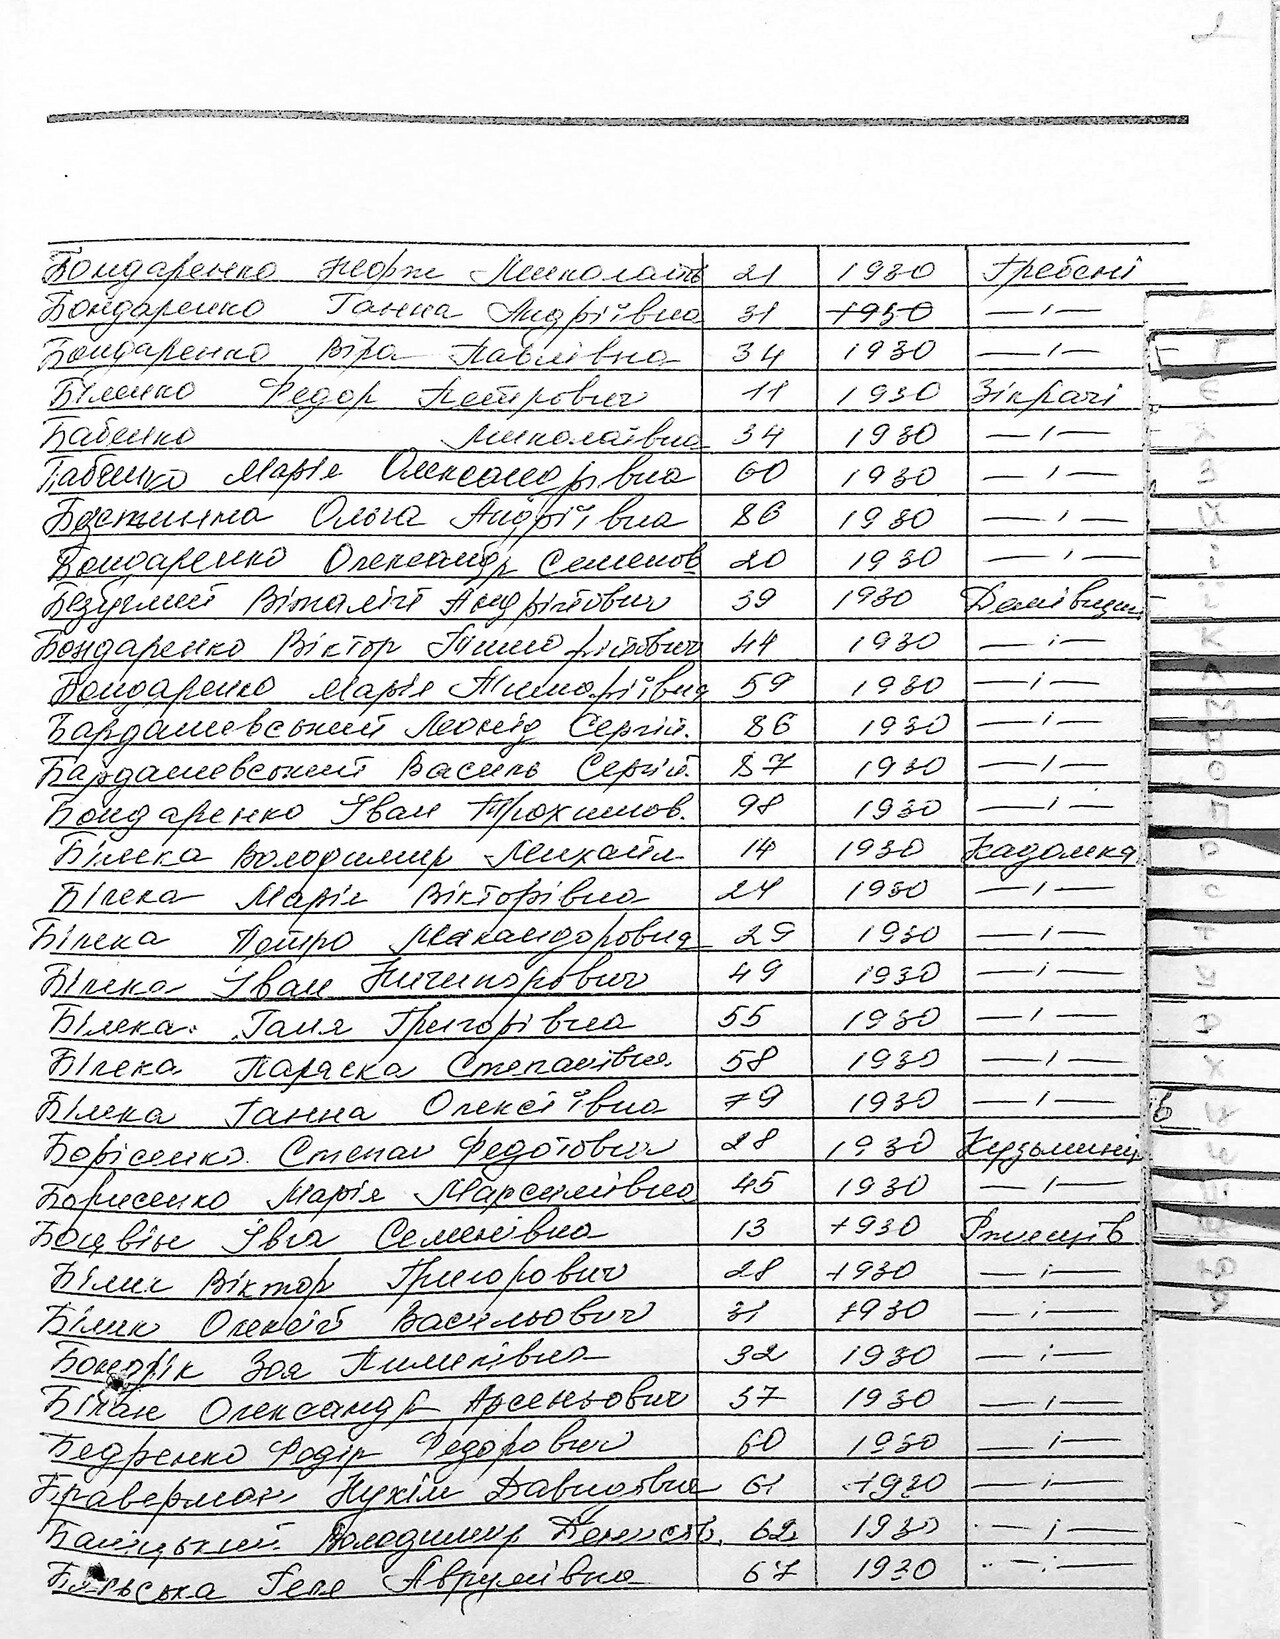 2
Бондаренко Жорж Миколаїв 21 1930 Гребені
Бондаренко Ганна Андріївна 31 1930 —ı—
Бондаренко Віра Павлівна 34 1930 —ı—
Біленко Федор Петрович 11 1930 Зікрачі
Бабенко Миколаївна 34 1930 —ı—
Бабенко Марія Олександрівна 60 1930 —ı—
Ольга Андріївна 86 1930 —ı—
Бондаренко Олександр Семенов 20 1930 —ı—
Безуглий Віталій Андрійович 39 1930
Бондаренко Віктор Тимофійович 44 1930 —ı—
Бондаренко Марія Тимофіївна 59 1930 —ı—
Бардашевський Леонід Сергій. 86 1930 —ı—
Бардашевський Василь Сергій. 87 1930 —ı—
Бондаренко Іван Трохимов. 98 1930 —ı—
Білека Володимир Михайл 14 1930 Кадомка
Білека Марія Вікторівна 24 1930 —ı—
Білека Петро 29 1930 —ı—
Білека Іван Ничипорович 49 1930 —ı—
Білека Галя Григорівна 55 1930 —ı—
Білека Параска Степанівна 58 1930 —ı—
Білека Ганна Олексіївна 79 1930 —ı—
Борісенко Степан Федотович 28 1930 Кузьминці
Борисенко Марія 45 1930 —ı—
Боцвін Івга Семенівна 13 1930 Ржищів
Білик Віктор Григорович 28 1930 —ı—
Білик Олексій Васильович 31 1930 —ı—
Зоя Пилипівна 32 1930 —ı—
Білан Олександр Арсеньович 37 1930 —ı—
Бедренко Федір Федорович 60 1930 —ı—
Браверман Нухім Давидович 61 1930 —ı—
Володимир Денисов. 62 1930 —ı—
Геля Аврумівна 67 1930 —ı—